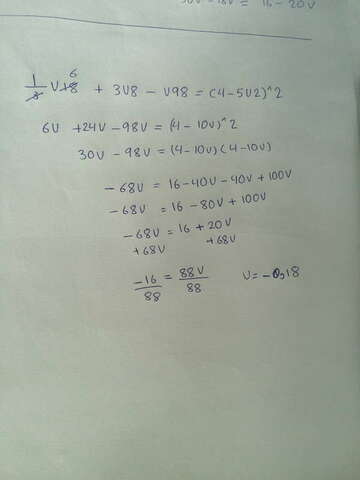 30V - 18V = 16 - 20V
1/3 V+18 6 + 3V8 - V98 = (4-5V2)^2
6V + 24V - 98V = (4 - 10V)^2
30V - 98V = (4-10V)(4-10V)
-68V = 16-40V-40V+100V
-68V = 16 - 80V + 100V
-68V = 16 + 20V
+68V +68V
-16/88 = 88V/88 V = -0,18